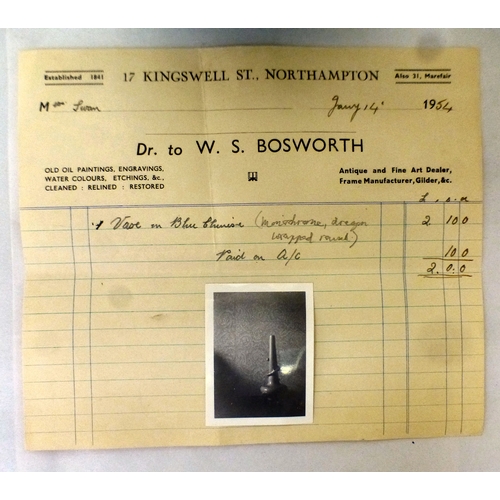 Established 1841
17 KINGSWELL ST., NORTHAMPTON
Also 31, Marefair
Mrs Swan
Jany 14 1954
Dr. to W. S. BOSWORTH
OLD OIL PAINTINGS, ENGRAVINGS,
WATER COLOURS, ETCHINGS, &c.,
CLEANED : RELINED : RESTORED
Antique and Fine Art Dealer,
Frame Manufacturer, Gilder, &c.
1 Vase in Blue Chinese (monochrome, dragon 2 10 0
wrapped round.)
Paid on A/C 10 0
2. 0. 0